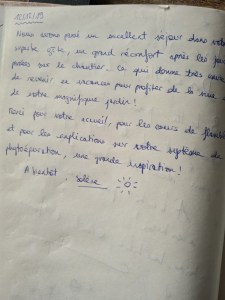 12/12/19
Nous avons passé un excellent séjour dans votre
gîte, un grand réconfort après les jours
passés sur le chantier... Ce qui donne très envie
de revenir en vacances pour profiter de la vue et
de votre magnifique jardin!
Merci pour votre accueil, pour les cœurs de
et pour les explications sur votre système de
phytoépuration, une grande inspiration!